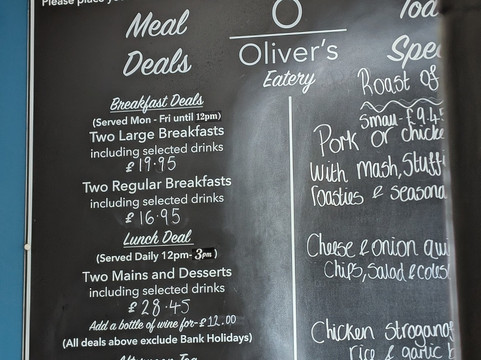 Please place yo
Meal
Deals
Breakfast Deals
(Served Mon - Fri until 12pm)
Two Large Breakfasts
including selected drinks
£19.95
Two Regular Breakfasts
including selected drinks
£16.95
Lunch Deal
(Served Daily 12pm-3pm)
Two Mains and Desserts
including selected drinks
£28.45
Add a bottle of wine for-£12.00
(All deals above exclude Bank Holidays)
Afternoon Tea
O
Oliver's
Eatery
Tod
Spe
Roast of
Small-£9.45
Pork or chicke
With mash, Stuffi
roasties & seasona
Cheese & onion qui
Chips, salad & coles
Chicken strogano
rice & garlic b